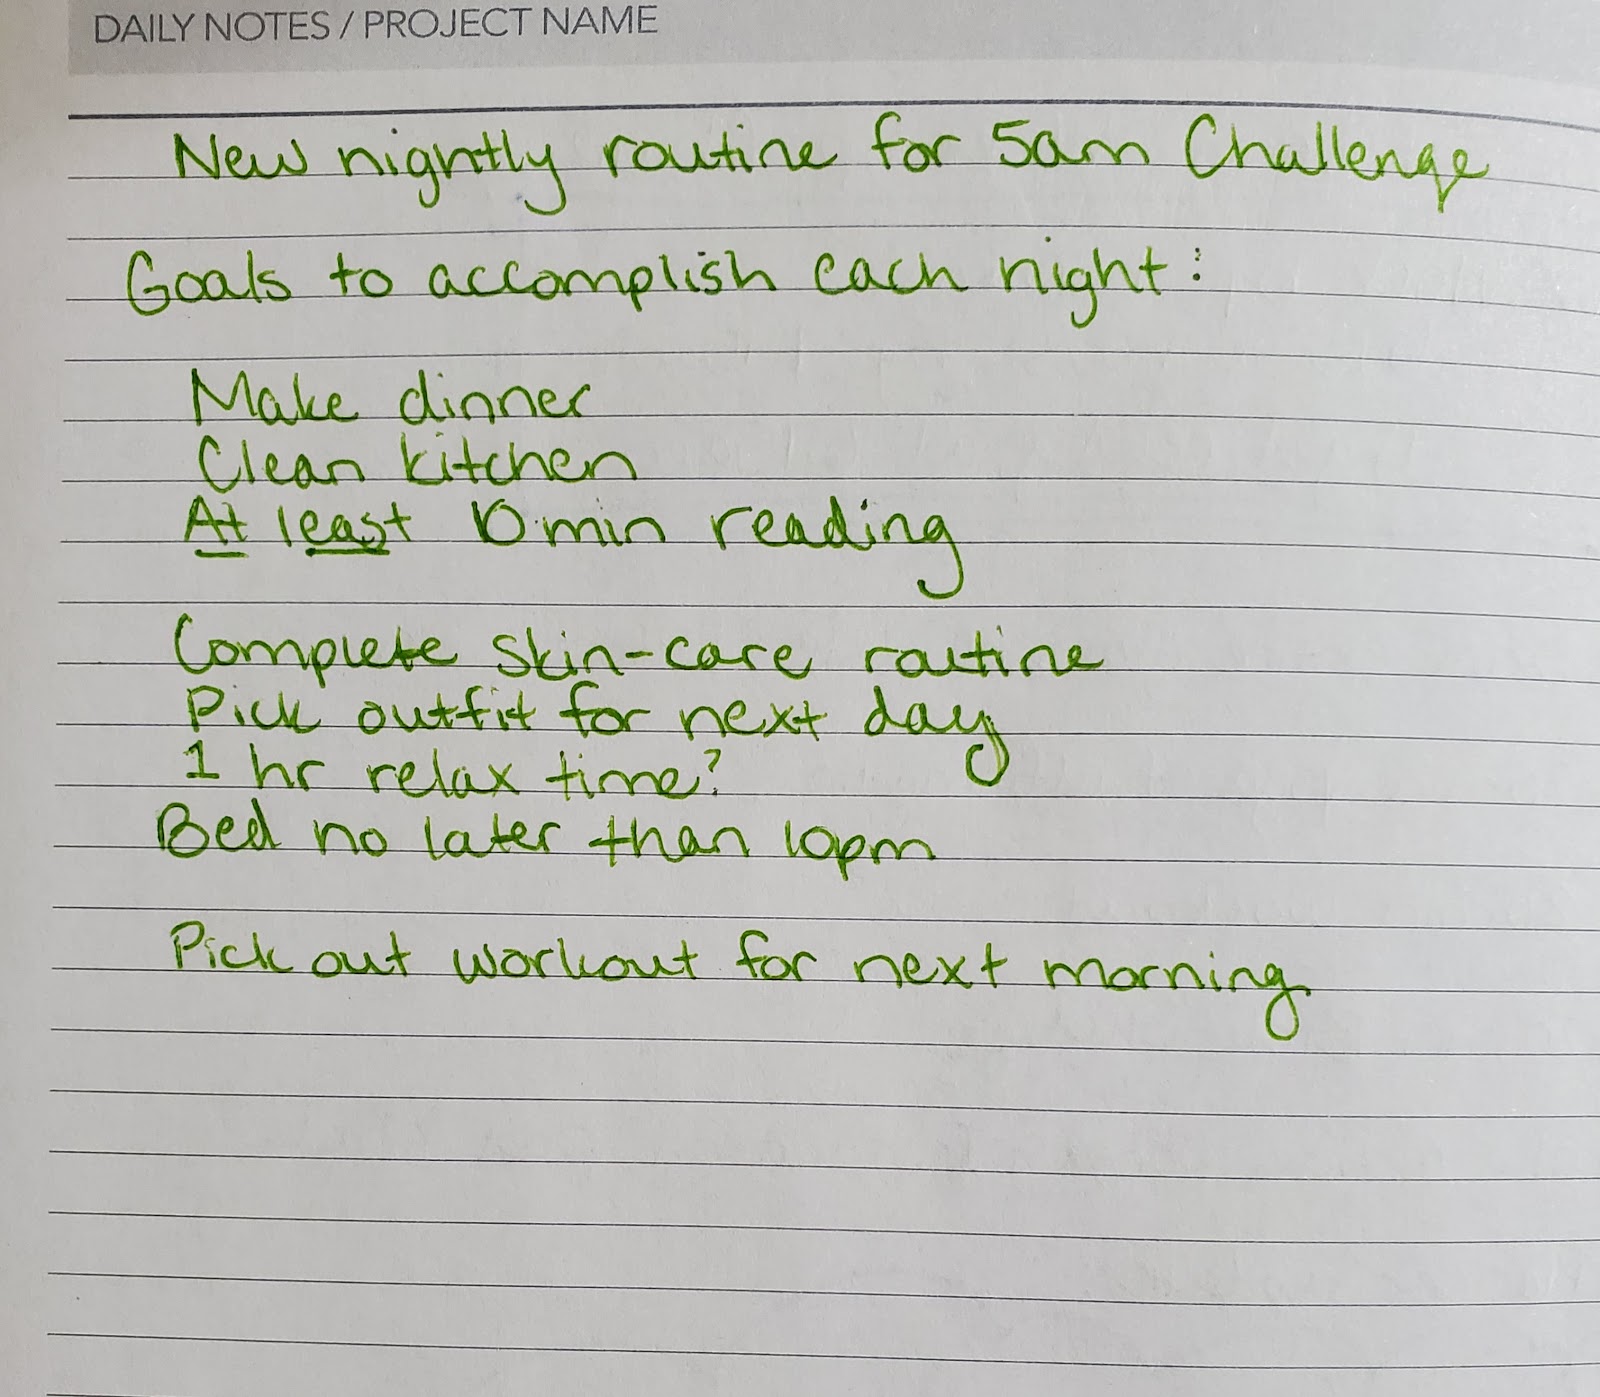 DAILY NOTES / PROJECT NAME
New nightly routine for 5am Challenge
Goals to accomplish each night:
Make dinner
Clean kitchen
At least 10 min reading
Complete skin-care routine
Pick outfit for next day
1 hr relax time?
Bed no later than 10pm
Pick out workout for next morning